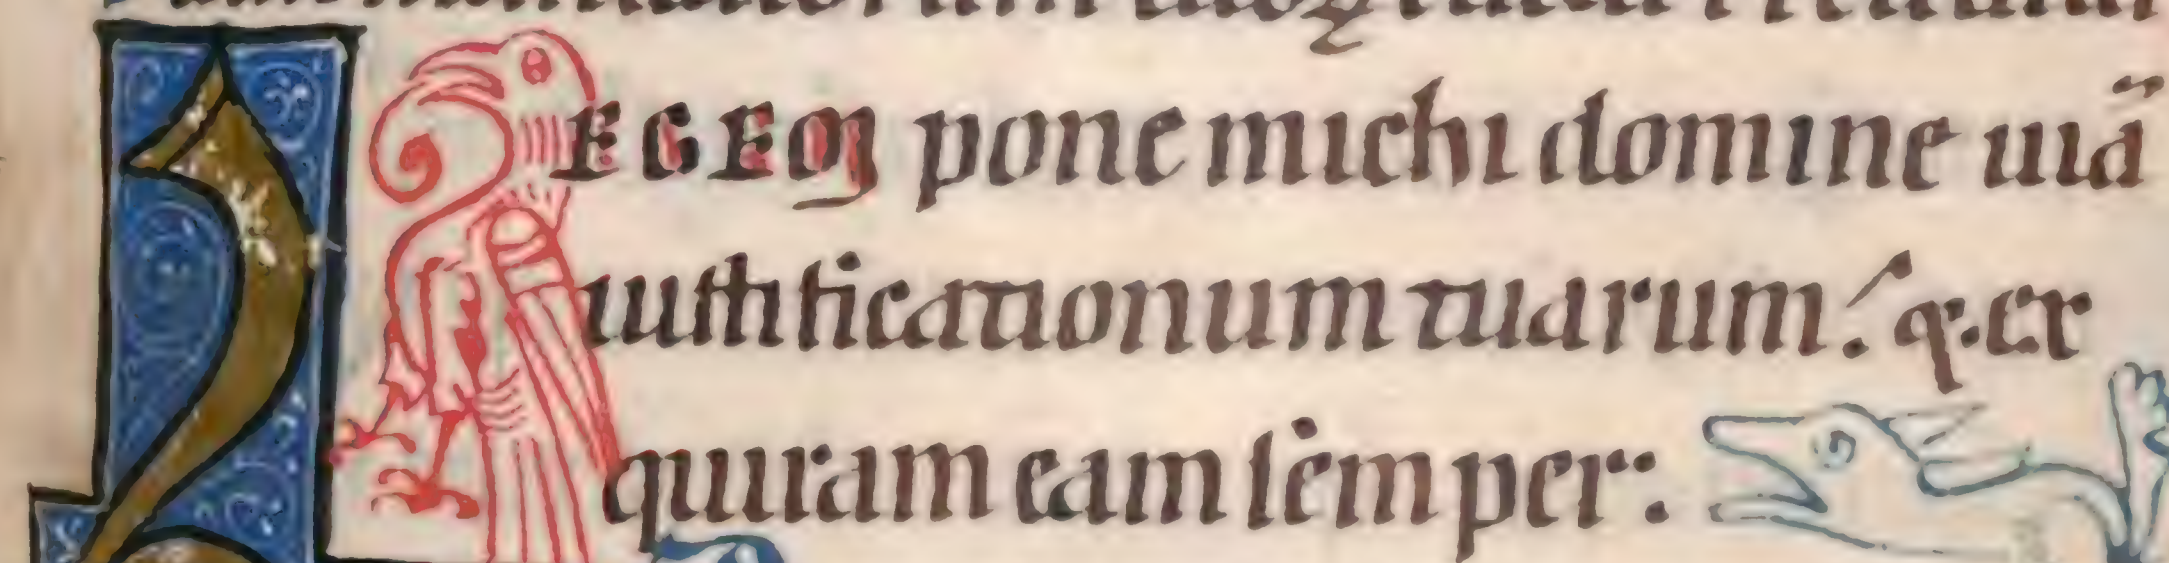 LEGEM pone michi domine uiã
iustificationum tuarum: & q̇. ex
quiram eam semper: